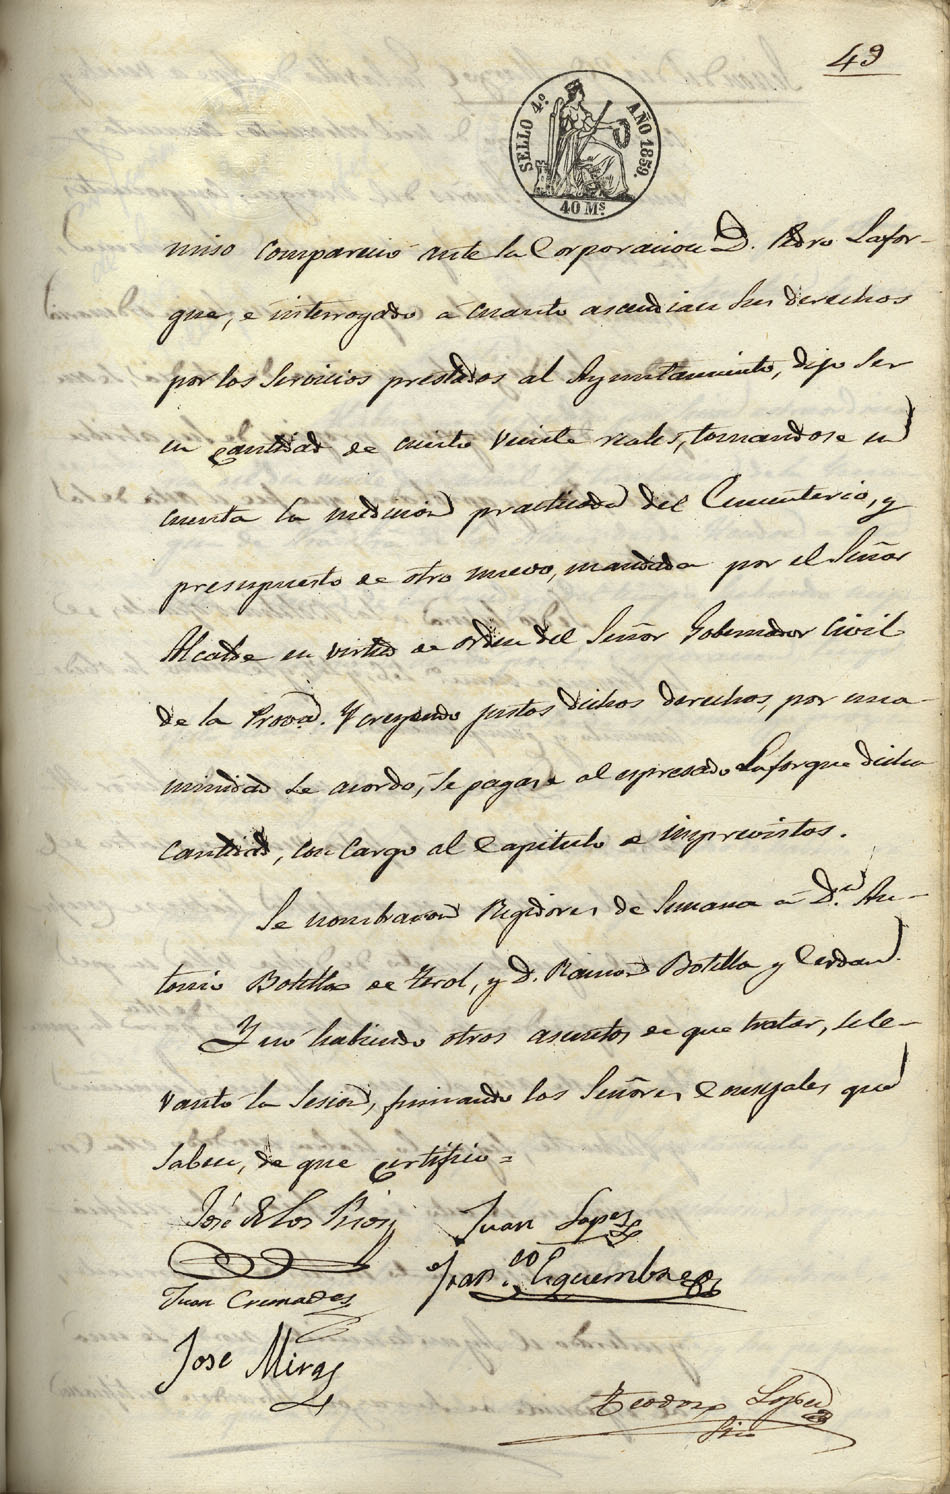 49
SELLO 4.º AÑO 1859.
40 Ms
miso comparecio ante la Corporacion D. Pedro Lafor-
gue, é interrogado á cuanto ascendian sus derechos
por los Servicios prestados al Ayuntamiento, dijo ser
en cantidad de ciento veinte reales, tomandose en
cuenta la medicion practicada del Cementerio, y
presupuesto de otro nuevo, mandada por el Señor
Alcalde en virtud de orden del Señor Gobernador Civil
de la Prova. Y creyendo justos dichos derechos, por una-
nimidad se acordo, se pagase al espresado Laforgue dicha
cantidad, con cargo al Capitulo de imprevistos.
Se nombraron Regidores de Semana á D.n An-
tonio Botella de Terol, y D. Ramon Botella y Cerdan.
Y nó habiendo otros asuntos de que tratar, se le-
vanto la Sesion, firmando los Señores Concejales que
saben, de que certifico =
José de los Rios
Juan Lopez
Juan Cremades
Fran.co Esquembre
Jose Miras
Teodoro Lopez
Srio